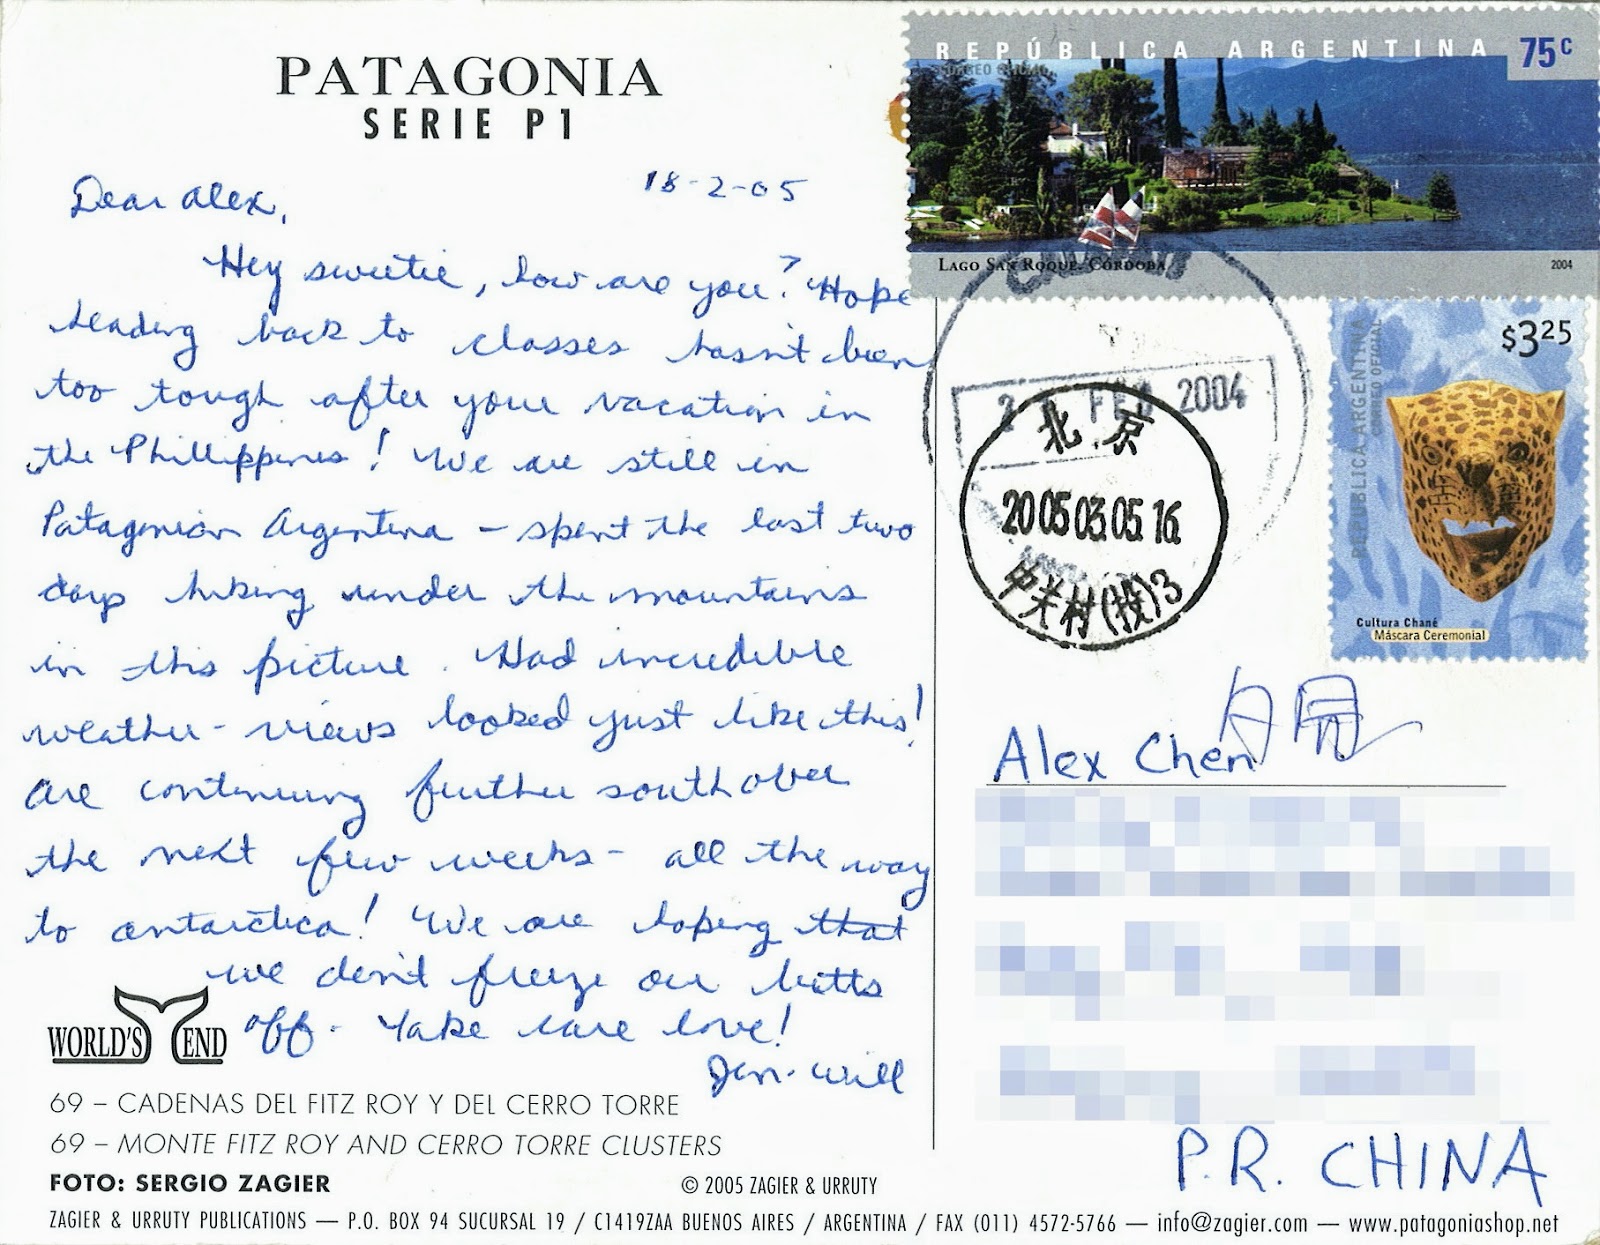 PATAGONIA
SERIE P1
18-2-05
Dear Alex,
Hey sweetie, how are you? Hope
heading back to classes hasn't been
too tough after your vacation in
the Phillippines! We are still in
Patagonian Argentina – spent the last two
days hiking under the mountains
in this picture. Had incredible
weather – views looked just like this!
Are continuing further south over
the next few weeks – all the way
to Antarctica! We are hoping that
we don't freeze our butts
off. Take care love!
Will
WORLD'S END
69 – CADENAS DEL FITZ ROY Y DEL CERRO TORRE
69 – MONTE FITZ ROY AND CERRO TORRE CLUSTERS
FOTO: SERGIO ZAGIER
© 2005 ZAGIER & URRUTY
ZAGIER & URRUTY PUBLICATIONS — P.O. BOX 94 SUCURSAL 19 / C1419ZAA BUENOS AIRES / ARGENTINA / FAX (011) 4572-5766 — info@zagier.com — www.patagoniashop.net
REPÚBLICA ARGENTINA 75c
CORREO OFICIAL
LAGO SAN ROQUE. CÓRDOBA
2004
$3.25
REPÚBLICA ARGENTINA
CORREO OFICIAL
Cultura Chané
Máscara Ceremonial
FEB 2004
北京
2005.03.05.16
中关村(投)3
Alex Chen
P.R. CHINA